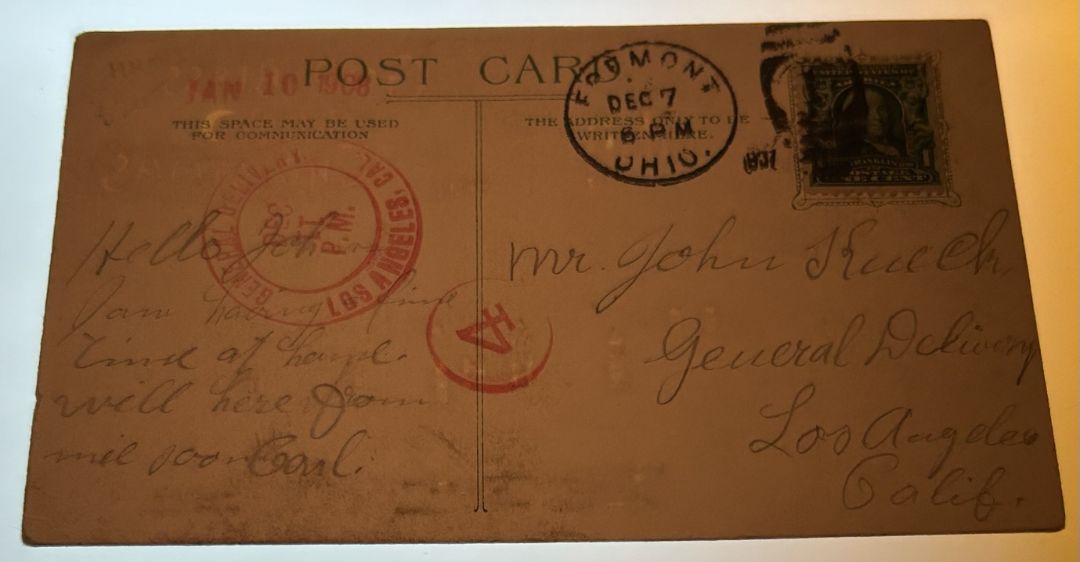 POST CARD
JAN 10 1908
THIS SPACE MAY BE USED
FOR COMMUNICATION
THE ADDRESS ONLY TO BE
WRITTEN HERE.
FREMONT
DEC 7
6 PM
OHIO.
1907
UNITED STATES OF
AMERICA
FRANKLIN
1
POSTAGE
ONE CENT
GENERAL DELIVERY
LOS ANGELES, CAL.
DEC
11
P.M.
A
Hello John
I am having fine
time at home.
will here from
me soon Carl.
Mr. John Kueck
General Delivery
Los Angeles
Calif.